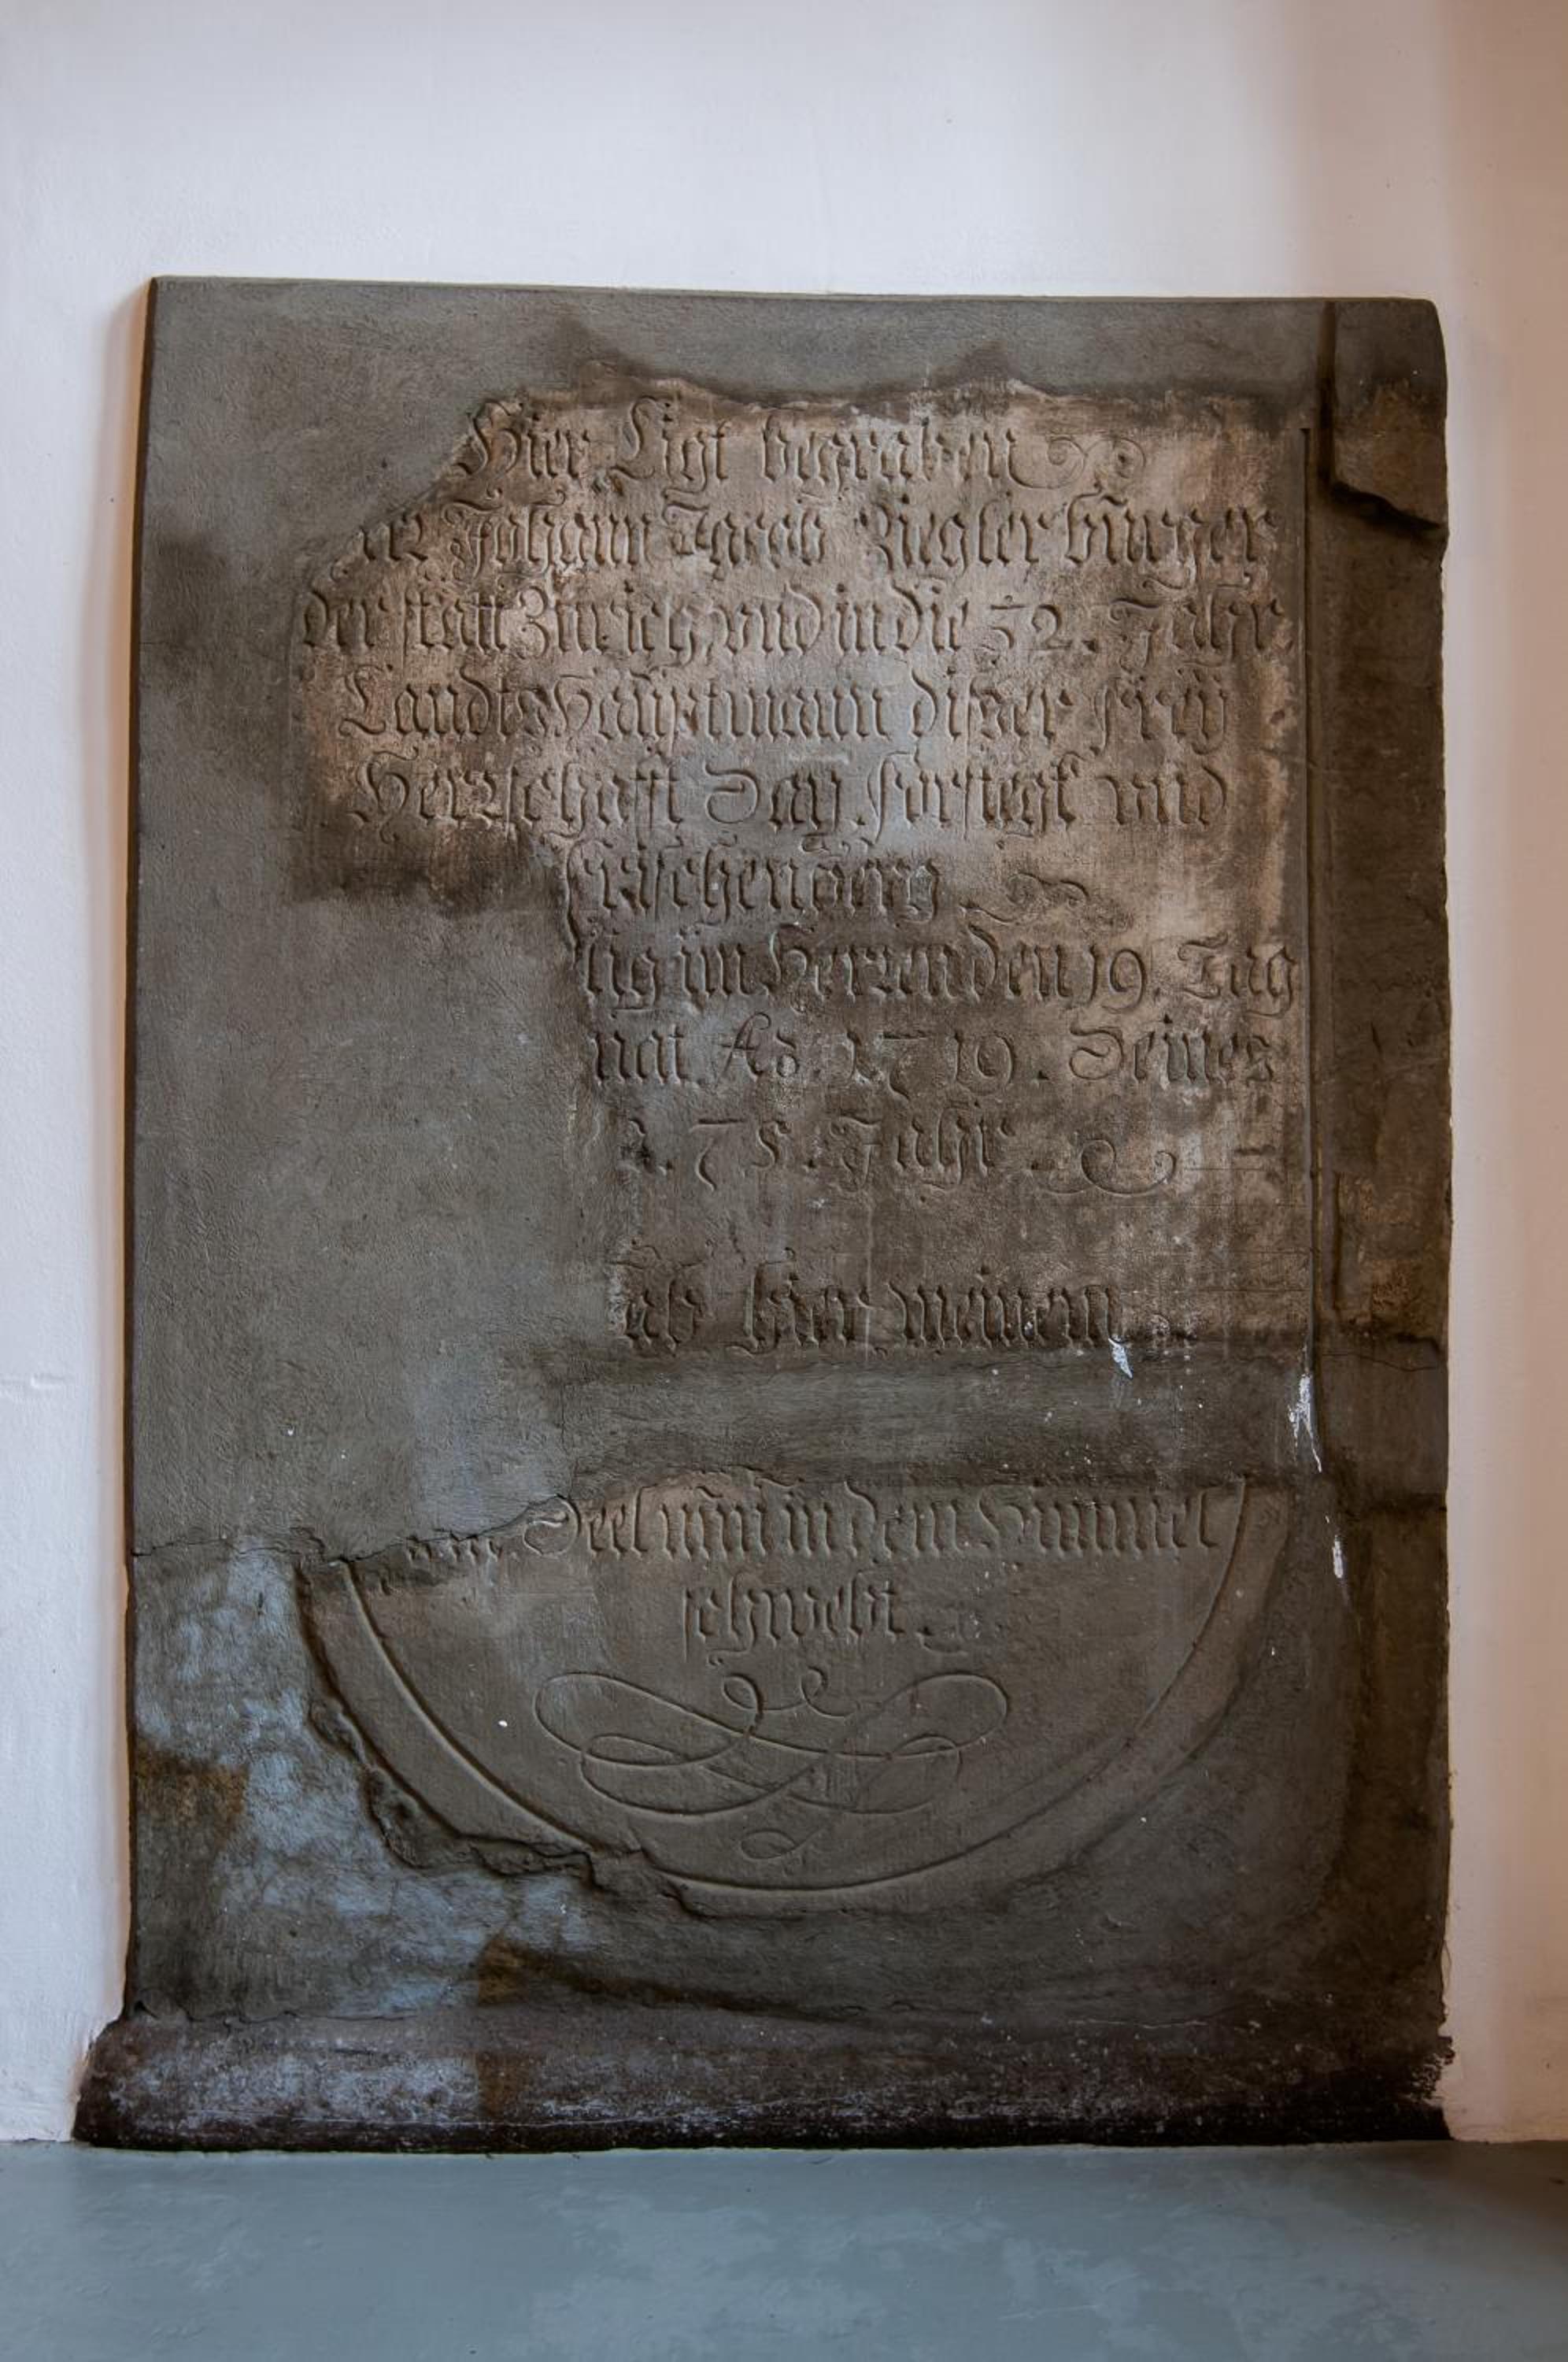 Hier Ligt begraben
Johann Jacob Ziegler bürger
der statt Zürich, und in die 32. Jahr
Landts Hauptmann diser Freÿ
Herrschafft Sax, Forstegk und
Frischenberg
lig im Herren den 19. Tag
nat. Ao. 1719. Seines
75. Jahr.
hier meinem
Seel nun in dem Himmel
schwebt.